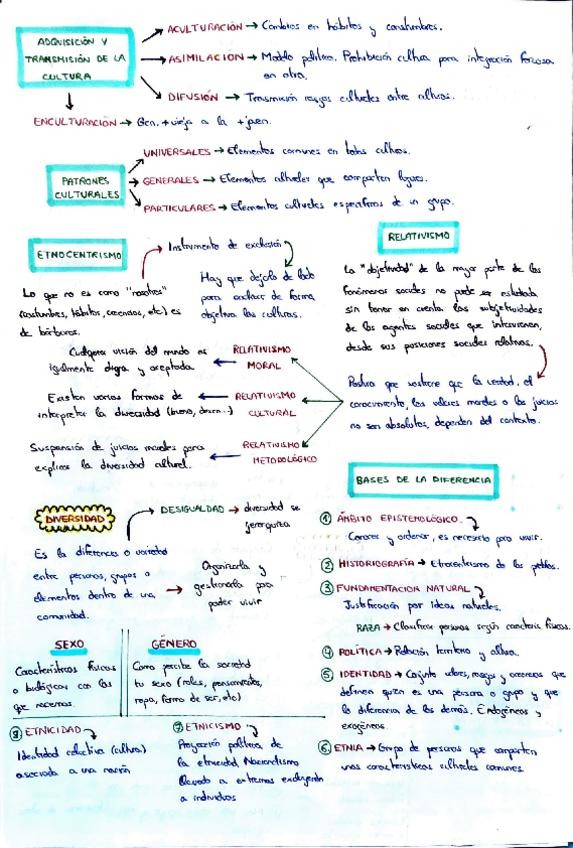 ADQUISICIÓN Y
TRANSMISIÓN DE LA
CULTURA
ACULTURACIÓN → Cambios en hábitos y costumbres.
ASIMILACION → Modelo político. Prohibición cultura para integración forzosa
en otra.
DIFUSIÓN → Transmisión rasgos culturales entre culturas.
ENCULTURACIÓN → Gen. + vieja a la + joven.
PATRONES
CULTURALES
UNIVERSALES → Elementos comunes en todas culturas.
GENERALES → Elementos culturales que comparten lugares.
PARTICULARES → Elementos culturales específicos de un grupo.
ETNOCENTRISMO
Instrumento de exclusión
Lo que no es como "nosotros"
(costumbres, hábitos, creencias, etc) es
de bárbaros.
Hay que dejarlo de lado
para analizar de forma
objetiva las culturas.
RELATIVISMO
La "objetividad" de la mayor parte de los
fenómenos sociales no puede ser estudiada
sin tener en cuenta las subjetividades
de los agentes sociales que intervienen,
desde sus posiciones sociales relativas.
Postura que sostiene que la verdad, el
conocimiento, los valores morales o los juicios
no son absolutos, dependen del contexto.
RELATIVISMO
MORAL
Cualquier visión del mundo es
igualmente digna y aceptada.
RELATIVISMO
CULTURAL
Existen varias formas de
interpretar la diversidad (bueno, ...)
RELATIVISMO
METODOLÓGICO
Suspensión de juicios morales para
explicar la diversidad cultural.
BASES DE LA DIFERENCIA
DIVERSIDAD
DESIGUALDAD → diversidad se
jerarquiza
Es la diferencia o variedad
entre personas, grupos o
elementos dentro de una
comunidad.
→ Organizarla y
gestionarla para
poder vivir
① ÁMBITO EPISTEMOLÓGICO
Conocer y ordenar, es necesario para vivir.
② HISTORIOGRAFÍA → Etnocentrismo de los pueblos.
③ FUNDAMENTACION NATURAL
Justificación por ideas naturales.
RAZA → Clasificar personas según caracteríс. físicas.
④ POLÍTICA → Relación territorio y cultura.
⑤ IDENTIDAD → Conjunto valores, rasgos y creencias que
definen quien es una persona o grupo y que
lo diferencia de los demás. Endogéneos y
exogéneos.
⑥ ETNIA → Grupo de personas que comparten
unas características culturales comunes.
SEXO
Características físicas
o biológicas con las
que nacemos.
GÉNERO
Como percibe la sociedad
tu sexo (roles, personalidad,
ropa, forma de ser, etc)
⑧ ETNICIDAD
Identidad colectiva (cultura)
asociada a una nación
⑦ ETNICISMO
Proyección política de
la etnicidad. Nacionalismo
llevado a extremos excluyendo
a individuos